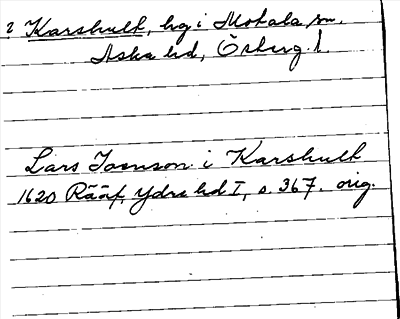 ? Karshult, hg i Motala sn.
Aska hd, Östergl.
Lars Joenson i Karshult
1620 Rääf, Ydre hd I, s. 367. orig.